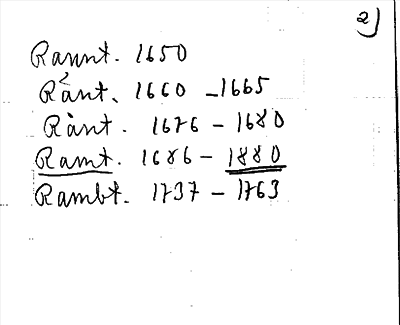 2)
Rannt. 1650
Ránt. 1660 - 1665
Rànt. 1676 - 1680
Ramt. 1686 - 1880
Rambt. 1737 - 1763